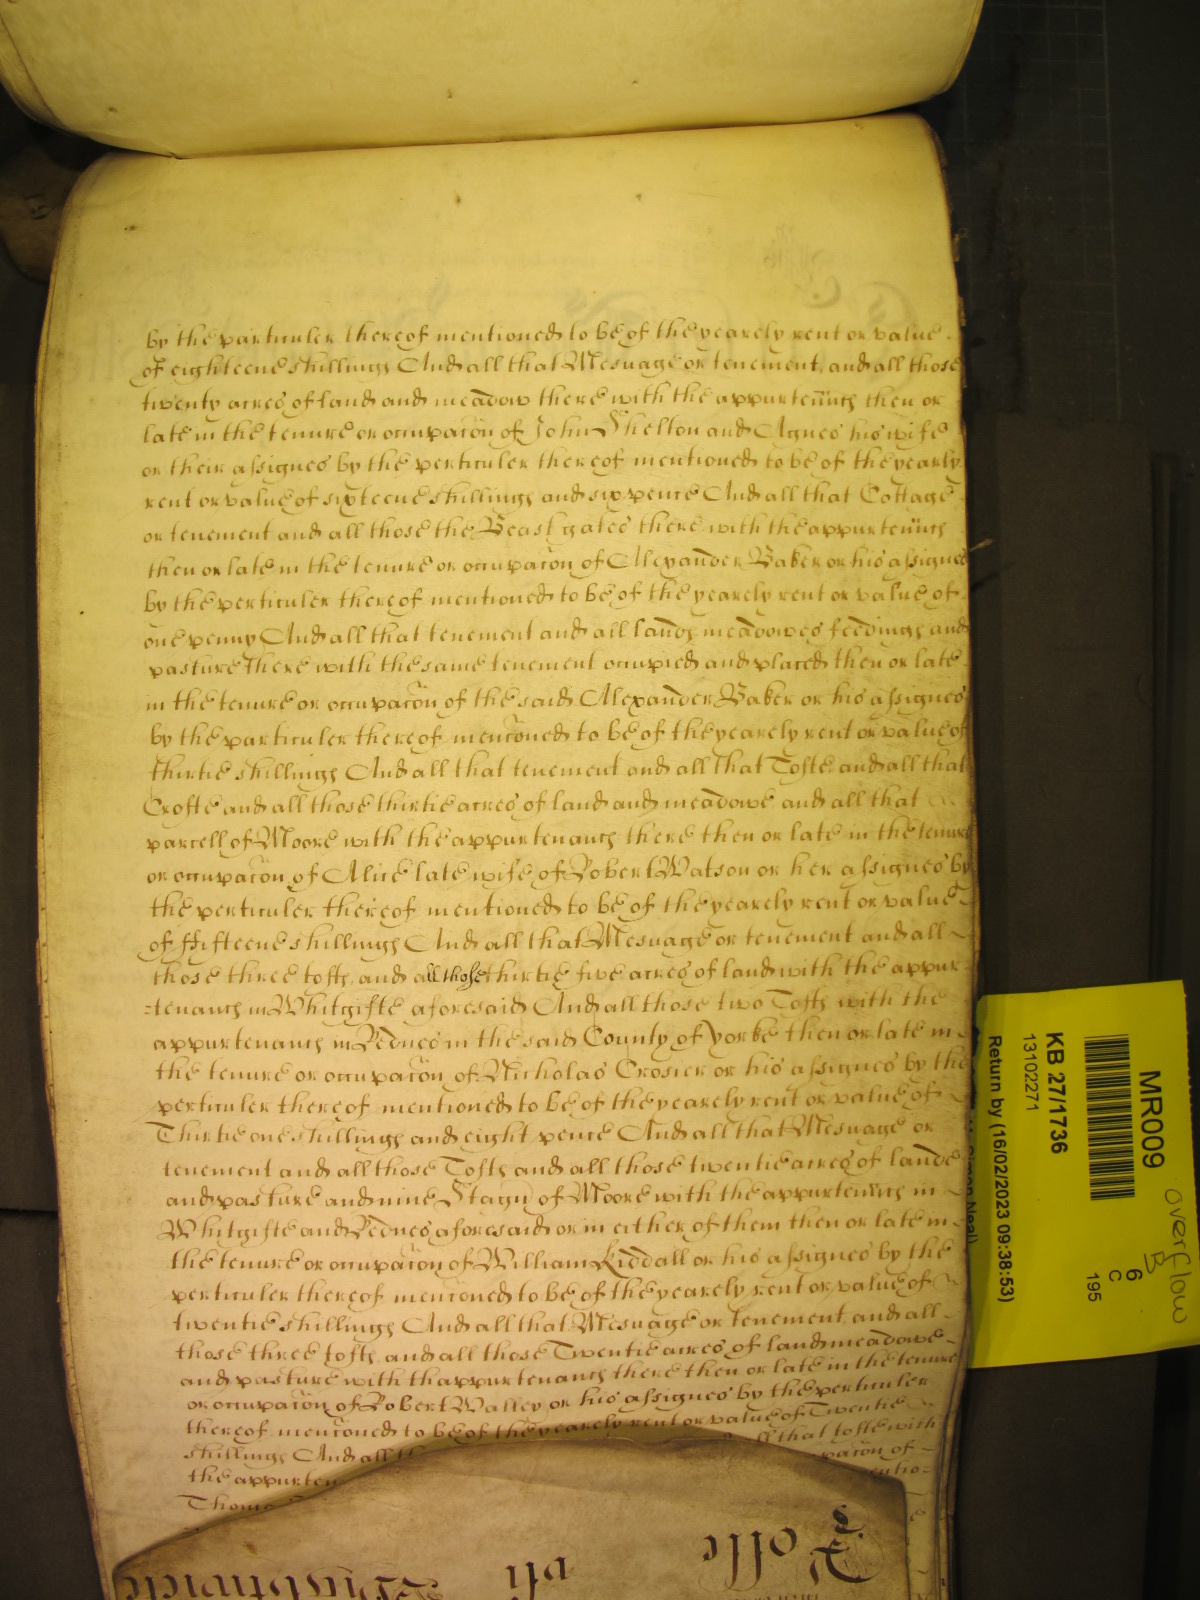 by the particuler thereof mentioned to be of the yearely rent or value
of eighteene shillings And all that Mesuage or tenement, and all those
twenty acres of land and meadow there with the appurtenncs then or
late in the tenure or occupacon of John Shelton and Agnes his wife
or their assignes by the perticuler thereof mentioned to be of the yearly
rent or value of sixteene shillings and six pence And all that Cottage
or tenement and all those the Beast gates there with the appurtenncs
then or late in the tenure or occupacon of Alexander Baker or his assignes
by the perticuler thereof mentioned to be of the yearely rent or value of
one penny And all that tenement and all lands meadowes feedings and
pasture there with the same tenement occupied and placed then or late
in the tenure or occupacon of the said Alexander Baker or his assignes
by the particuler thereof menconed to be of the yearely rent or value of
thirtie shillings And all that tenement and all that Tofte and all that
Crofte and all those thirtie acres of land and meadowe and all that
parcell of Moore with the appurtenancs there then or late in the tenure
or occupacon of Alice late wife of Robert Watson or her assignes by
the perticuler thereof mentioned to be of the yearely rent or value
of ffifteene shillings And all that Mesuage or tenement and all
those three tofts and all those thirtie five acres of land with the appur-
-tenancs in Whitgifte aforesaid And all those two Tofts with the
appurtenancs in Rednes in the said County of Yorke then or late in
the tenure or occupacon of Nicholas Crosier or his assignes by the
perticuler thereof mentioned to be of the yearely rent or value of
Thirtie one shillings and eight pence And all that Mesuage or
tenement and all those Tofts and all those twentie acres of lande
and pasture and nine Stagn of Moore with the appurtenncs in
Whitgifte and Rednes aforesaid or in either of them then or late in
the tenure or occupacon of William Kiddall or his assignes by the
perticuler thereof mencioned to be of the yearely rent or value of
twentie shillings And all that Mesuage or tenement and all
those three tofts and all those Twentie acres of land meadowe
and pasture with thappurtenancs there then or late in the tenure
or occupacon of Robert Walley or his assignes by the perticuler
thereof menconed to be of the yearely rent or value of Twentie
shillings And all th all that tofte with
the appurten pacon of
Thoma entio-
Rolle
MR009
KB 27/1736
13102271
Return by (16/02/2023 09:38:53)
Simon Neal)
6
C
195
overflow
B